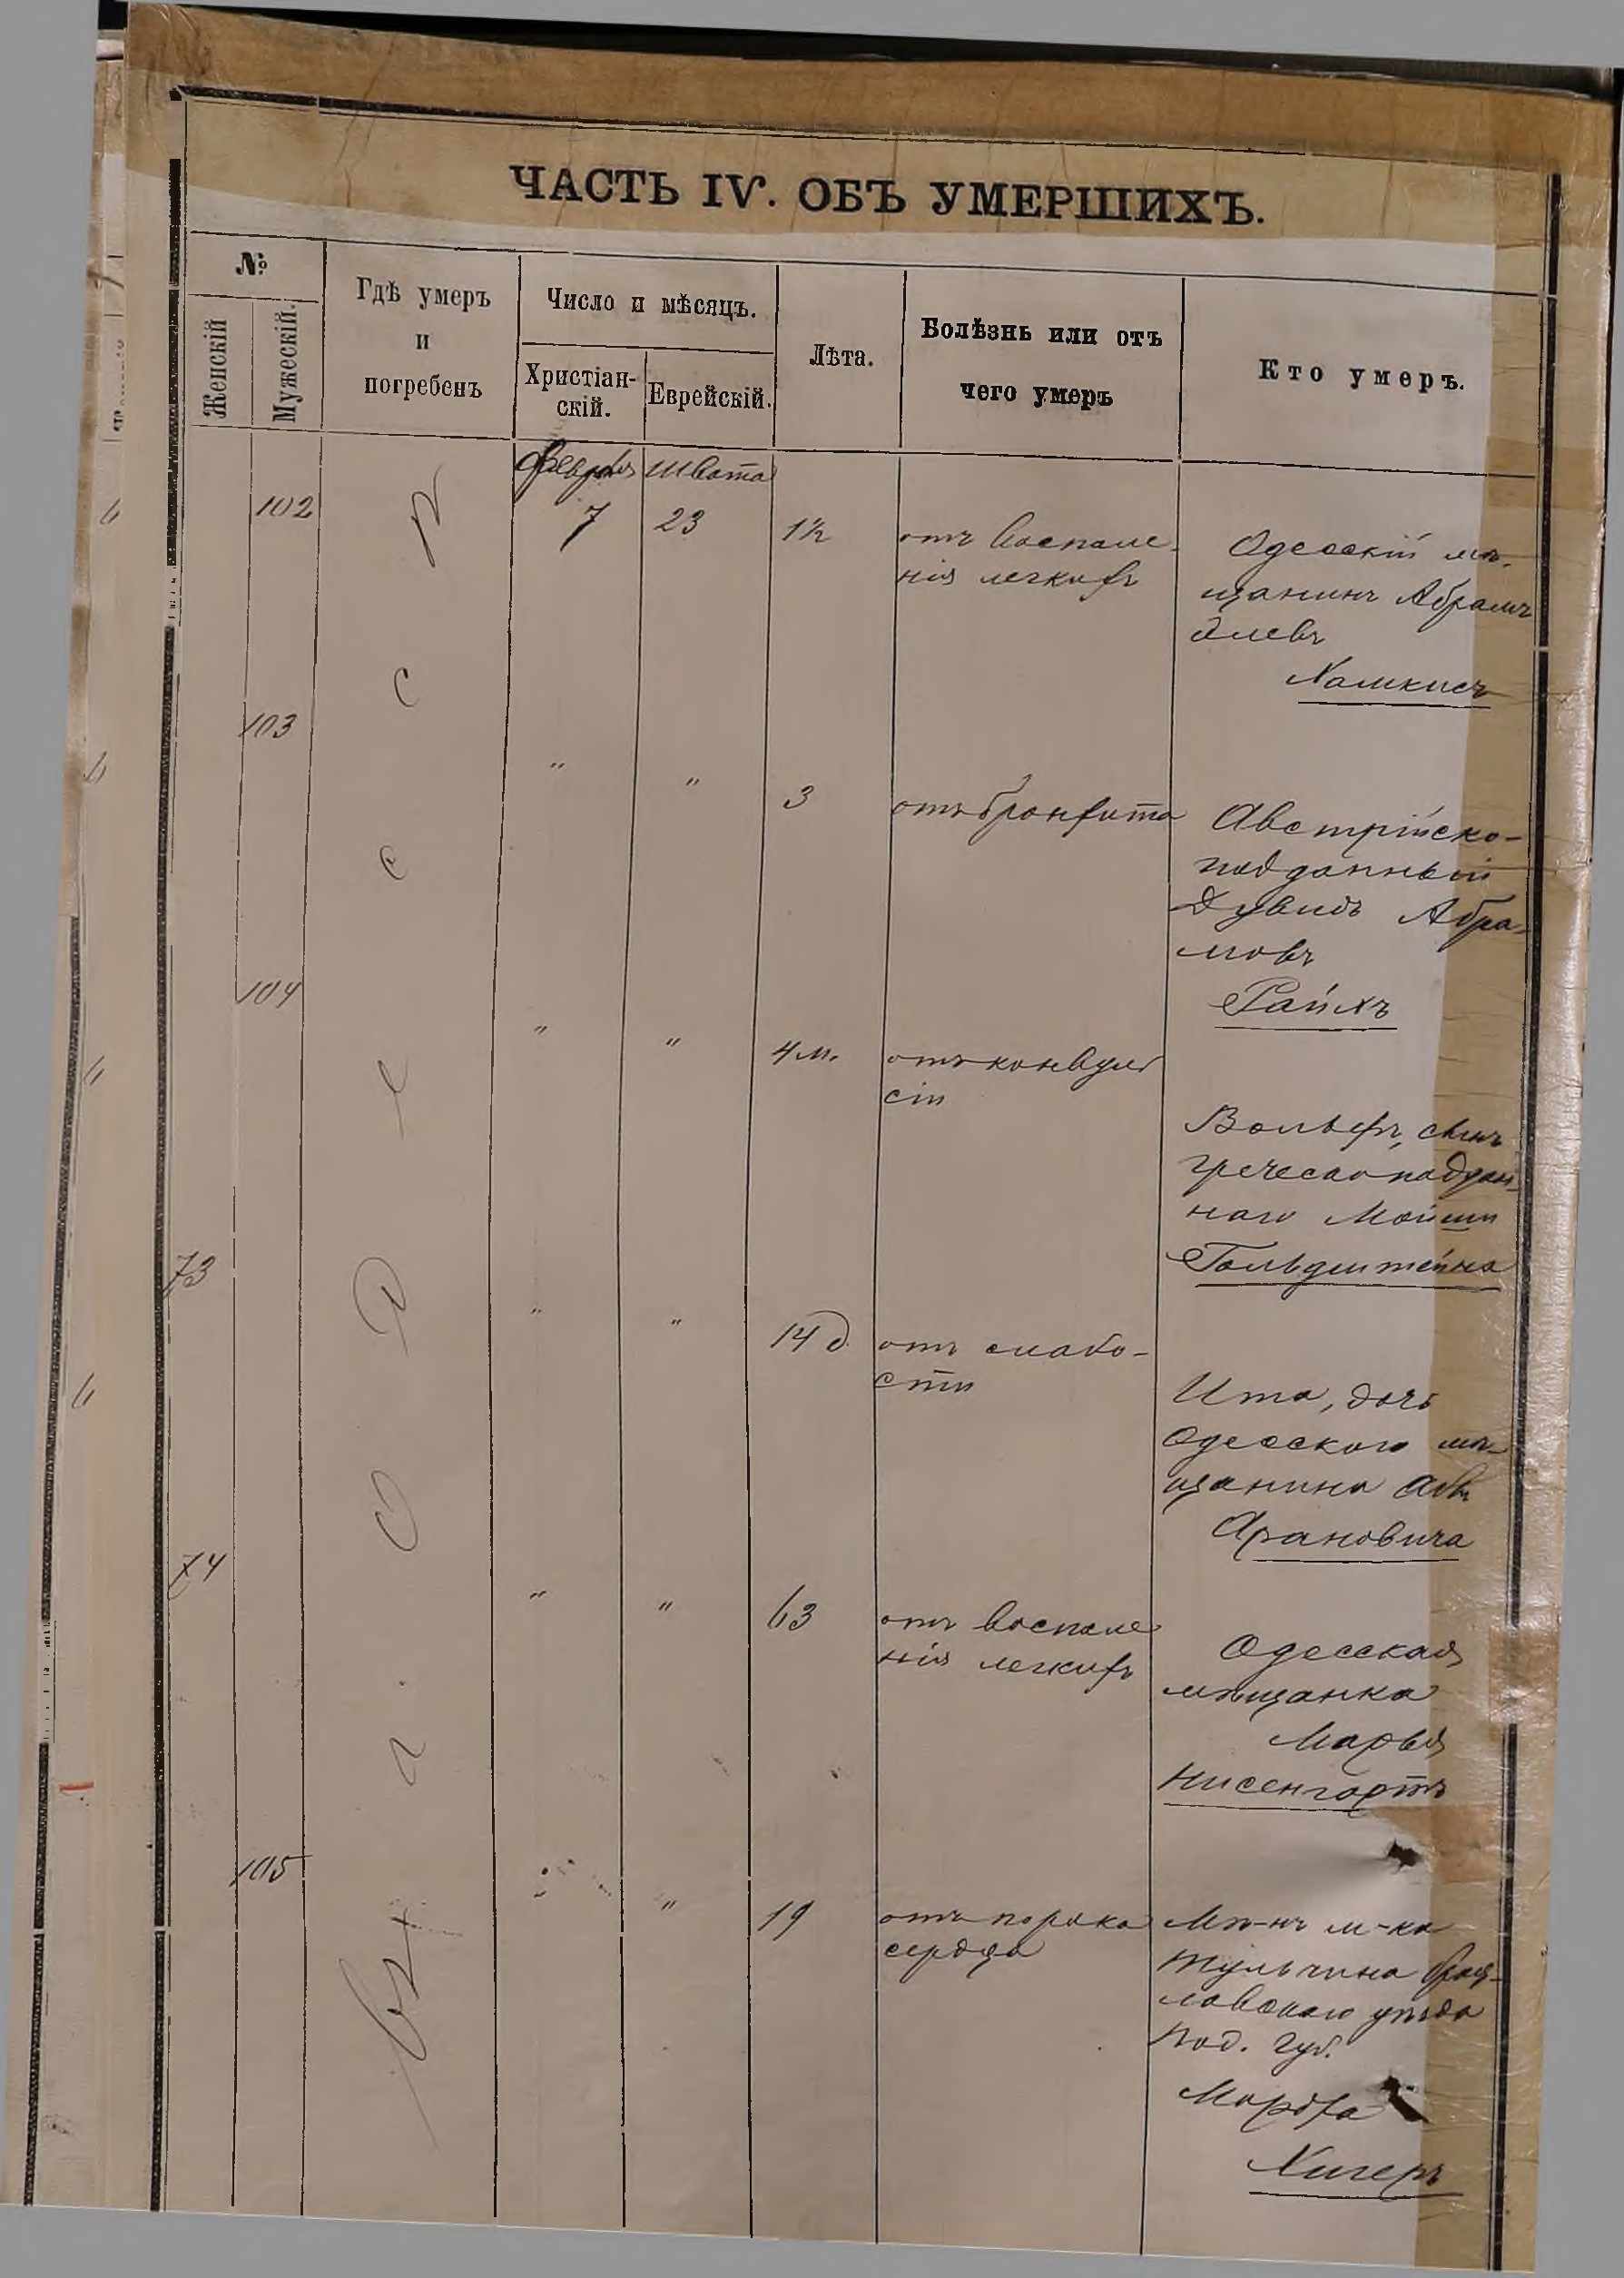 ЧАСТЬ IV. ОБЪ УМЕРШИХЪ.
№
Женскій
Мужескій.
Гдѣ умеръ
и
погребенъ
Число и мѣсяцъ.
Христіан-
скій.
Еврейскій.
Лѣта.
Болѣзнь или отъ
чего умеръ
Кто умеръ.
Въ г. Одессѣ
Февраля Швата
102 7 23 1½ отъ воспале-
нія легкихъ
Одесскій мѣ-
щанинъ Абрамъ
Хаимкисъ
103 " " 3 отъ бронхита
Австрійско-
подданный
Дувидъ Абра-
мовъ
Райхъ
104 " " 4 м. отъ конвуль
сій
Вольфъ, сынъ
греческоподдан-
наго Мойши
Гольдштейна
73 " " 14 д. отъ слабо-
сти
Ита, дочь
Одесского мѣ-
щанина
Арановича
74 " " 63 отъ воспале
нія легкихъ
Одесская
мѣщанка
Марья
Нисенгартъ
105 " " 19 отъ порока
сердца
Мѣ-нъ м-ка
Тульчина Брац-
лавскаго уѣзда
Под. губ.
Мордха
Хигеръ